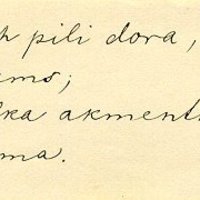 h pili dora,
ems;
ka akment
ma.